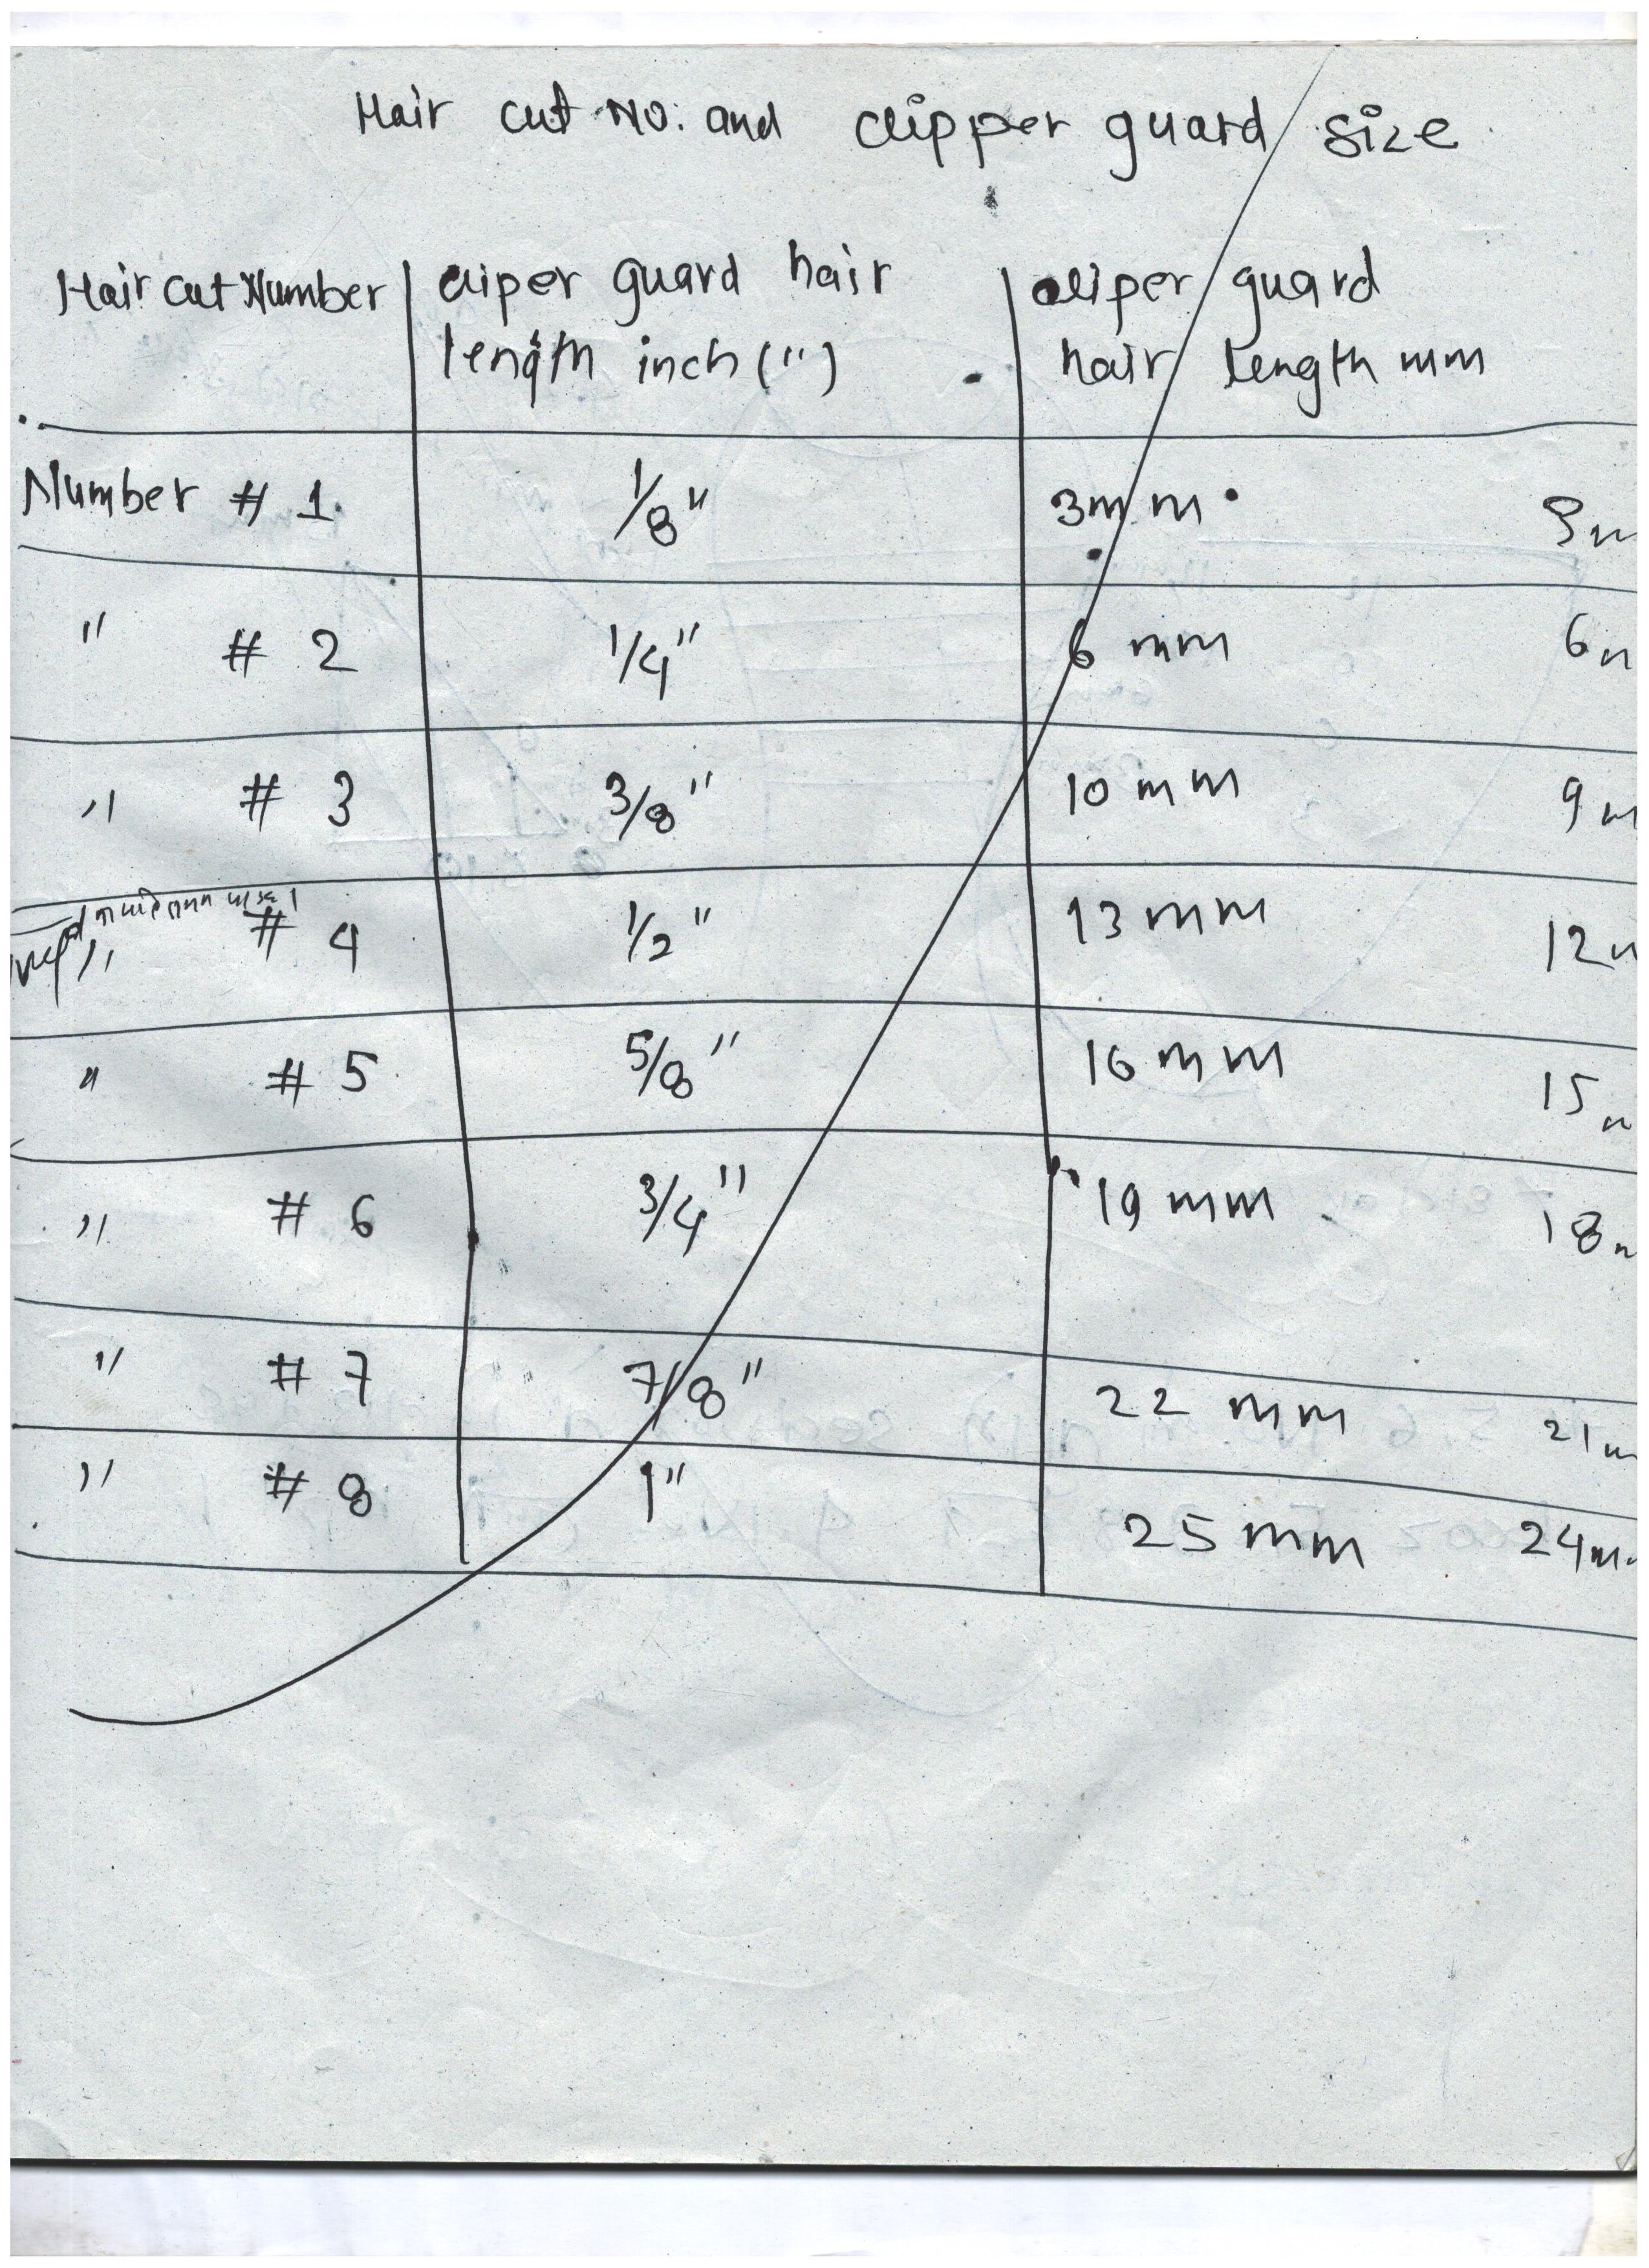 Hair cut No. and clipper guard size
Hair cut Number
cliper guard hair
length inch (")
cliper guard
hair length mm
Number # 1 1/8" 3mm
" # 2 1/4" 6 mm 6
" # 3 3/8" 10 mm 9
" # 4 1/2" 13 mm 12
" # 5 5/8" 16 mm 15
" # 6 3/4" 19 mm 18
" # 7 7/8" 22 mm 21
" # 8 1" 25 mm 24